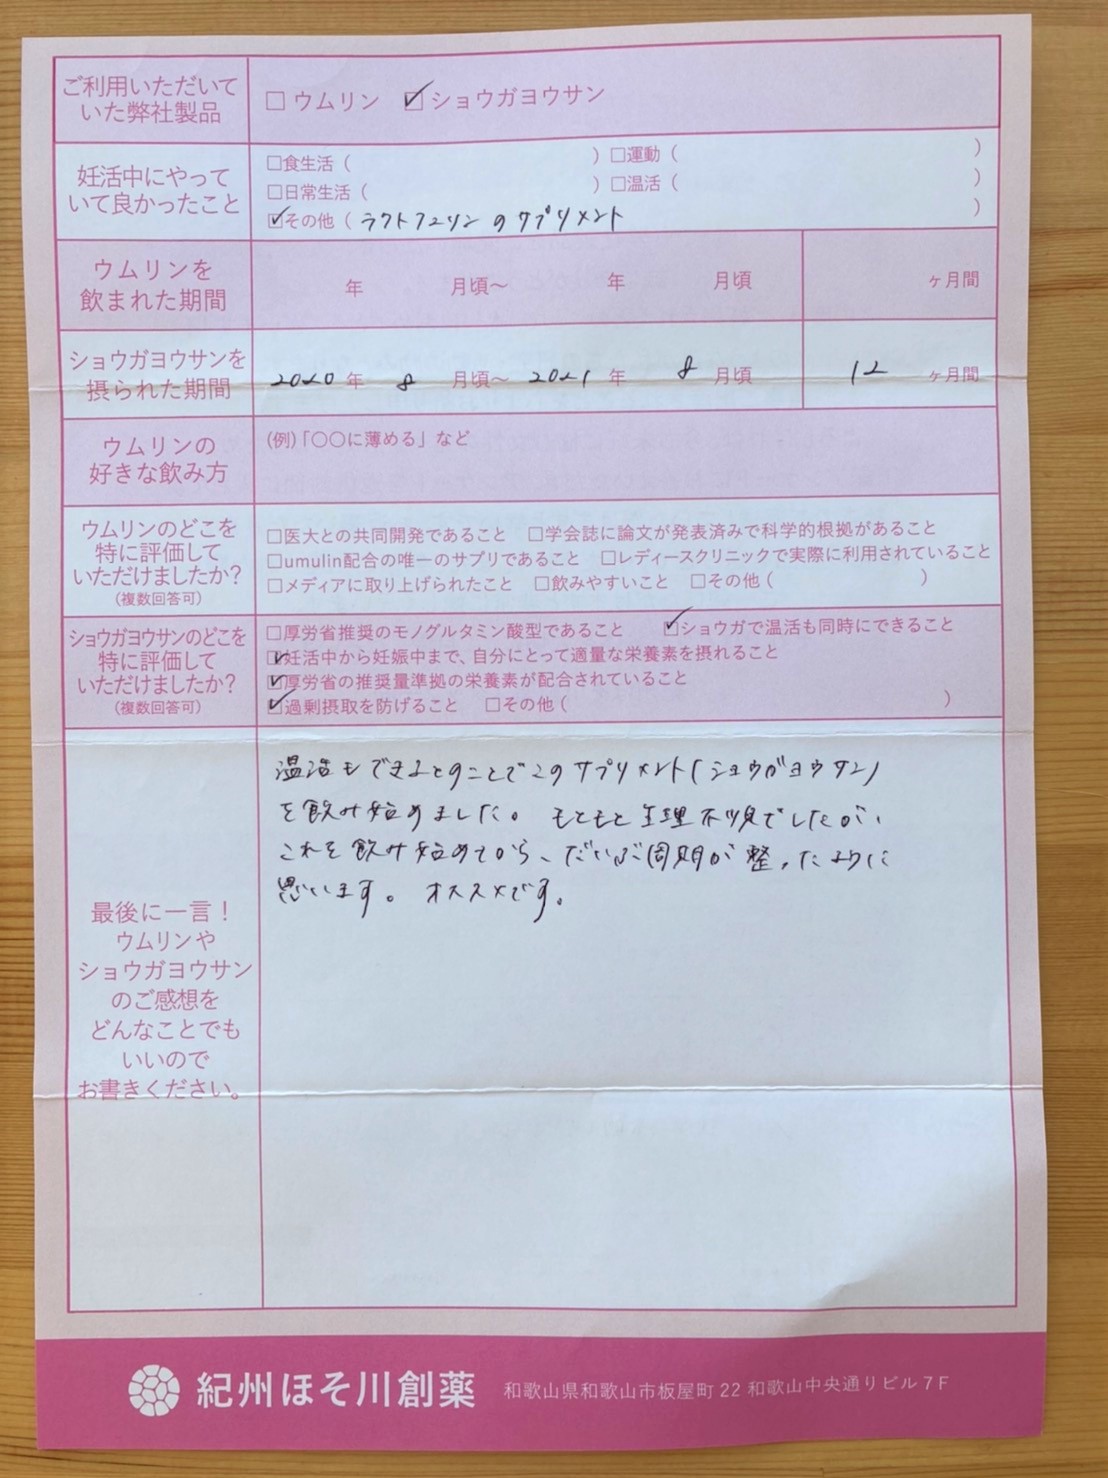 ご利用いただいて
いた弊社製品
□ ウムリン ☑ ショウガヨウサン
妊活中にやって
いて良かったこと
□食生活（ ）□運動（ ）
□日常生活（ ）□温活（ ）
☑その他（ ラクトフェリンのサプリメント ）
ウムリンを
飲まれた期間
年 月頃〜 年 月頃 ヶ月間
ショウガヨウサンを
摂られた期間
2020年 8月頃〜 2021年 8月頃 12ヶ月間
ウムリンの
好きな飲み方
(例)「〇〇に薄める」など
ウムリンのどこを
特に評価して
いただけましたか？
(複数回答可)
□医大との共同開発であること □学会誌に論文が発表済みで科学的根拠があること
□umulin配合の唯一のサプリであること □レディースクリニックで実際に利用されていること
□メディアに取り上げられたこと □飲みやすいこと □その他（ ）
ショウガヨウサンのどこを
特に評価して
いただけましたか？
(複数回答可)
□厚労省推奨のモノグルタミン酸型であること ☑ショウガで温活も同時にできること
☑妊活中から妊娠中まで、自分にとって適量な栄養素を摂れること
☑厚労省の推奨量準拠の栄養素が配合されていること
☑過剰摂取を防げること □その他（ ）
最後に一言！
ウムリンや
ショウガヨウサン
のご感想を
どんなことでも
いいので
お書きください。
温活もできるとのことでこのサプリメント(ショウガヨウサン)
を飲み始めました。もともと生理不順でしたが、
これを飲み始めてから、だいぶ周期が整ったように
思います。オススメです。
紀州ほそ川創薬 和歌山県和歌山市板屋町22 和歌山中央通りビル7F